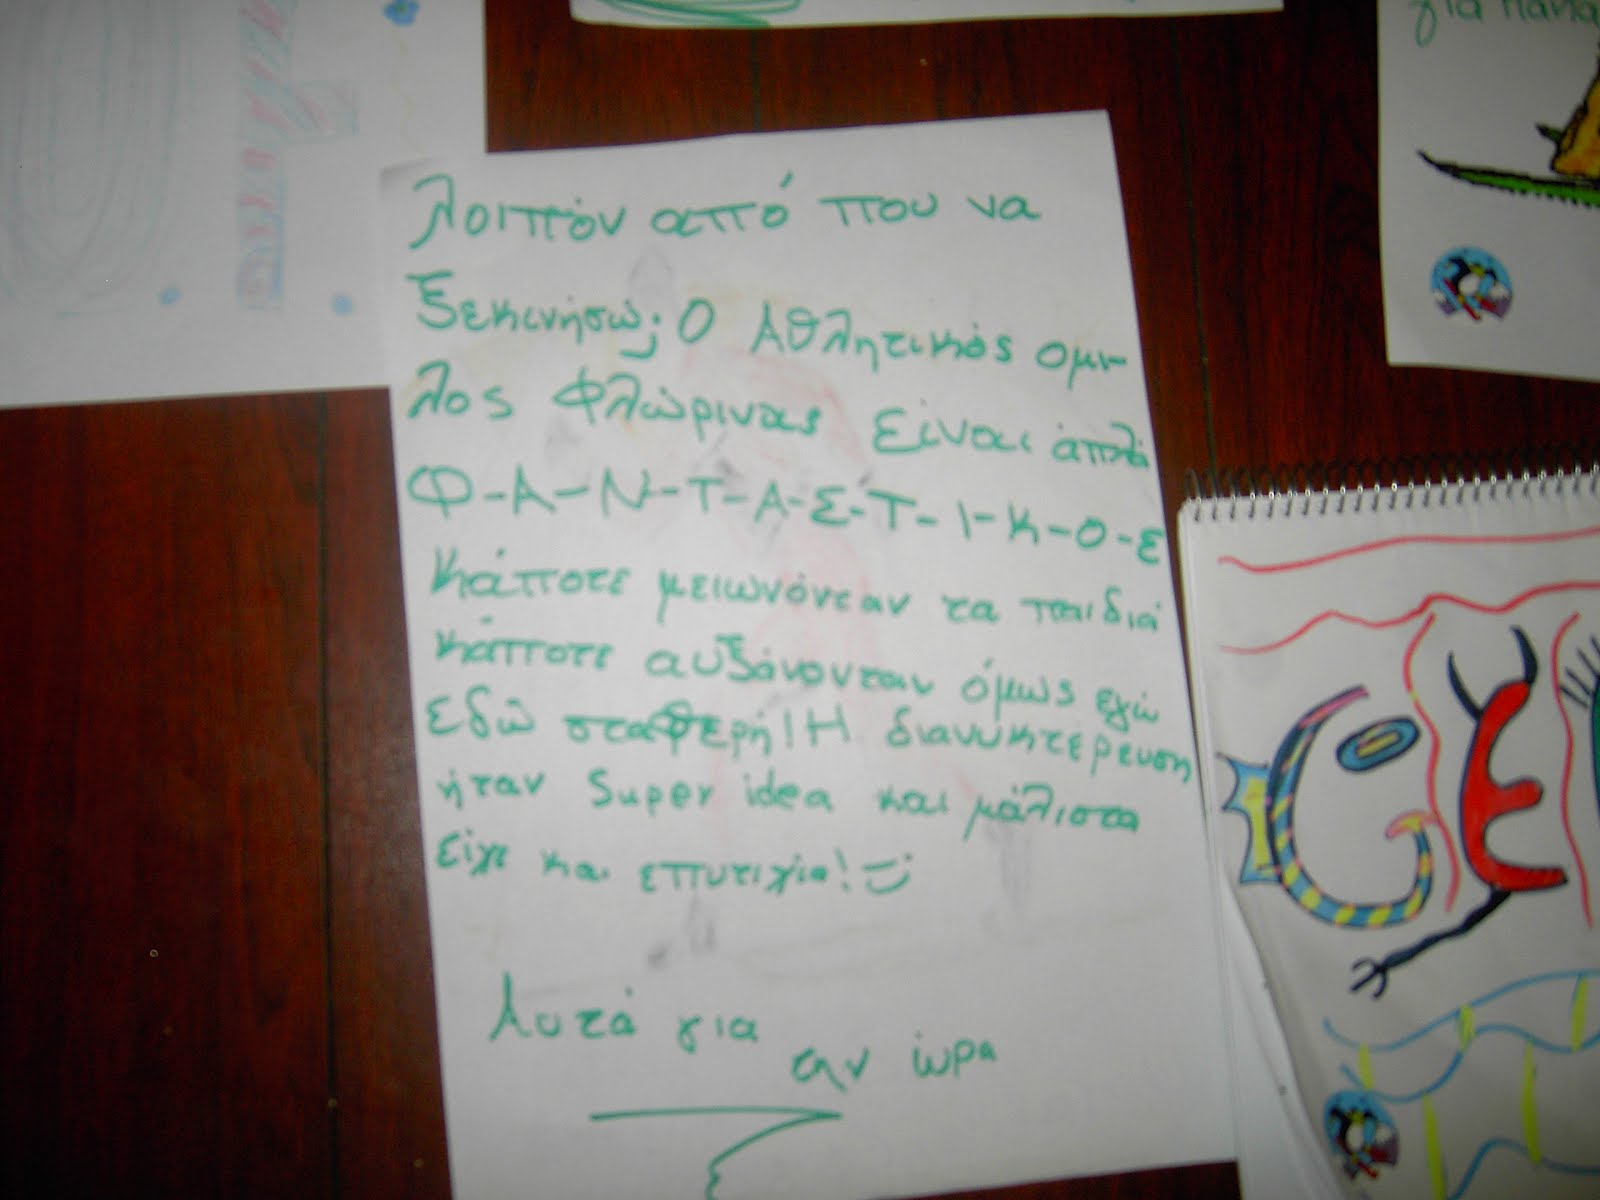 για
Λοιπόν από που να
ξεκινήσω; Ο Αθλητικός ομι-
λος Φλώρινας είναι απλά
Φ-Α-Ν-Τ-Α-Σ-Τ-Ι-Κ-Ο-Σ
κάποτε μειωνόνταν τα παιδιά
κάποτε αυξάνονταν όμως εγώ
εδώ σταθερή! Η διανυκτέρευση
ήταν Super idea και μάλιστα
είχε και επιτυχία!
Αυτά για
την ώρα